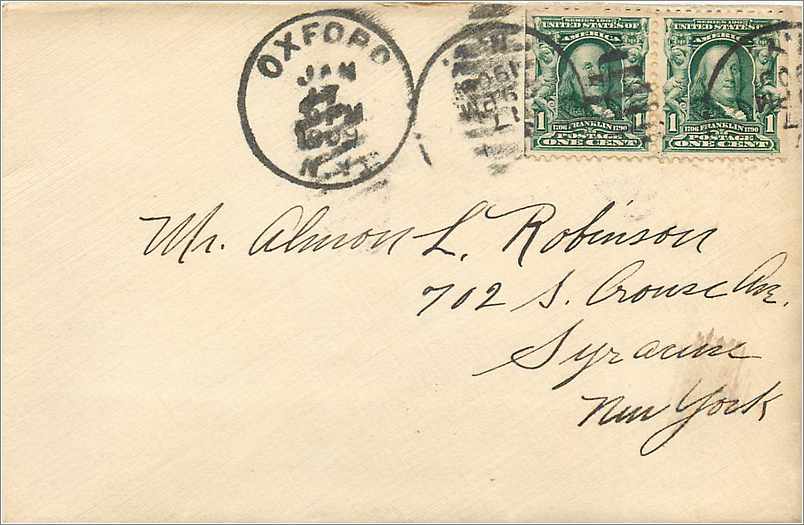 OXFORD
JAN
17
1909
N.Y.
SERIES 1902
UNITED STATES OF
AMERICA
1706 FRANKLIN 1790
1 POSTAGE 1
ONE CENT
SERIES 1902
UNITED STATES OF
AMERICA
1706 FRANKLIN 1790
1 POSTAGE 1
ONE CENT
Mr. Almon L. Robinson
702 S. Crouse Ave.
Syracuse
New York